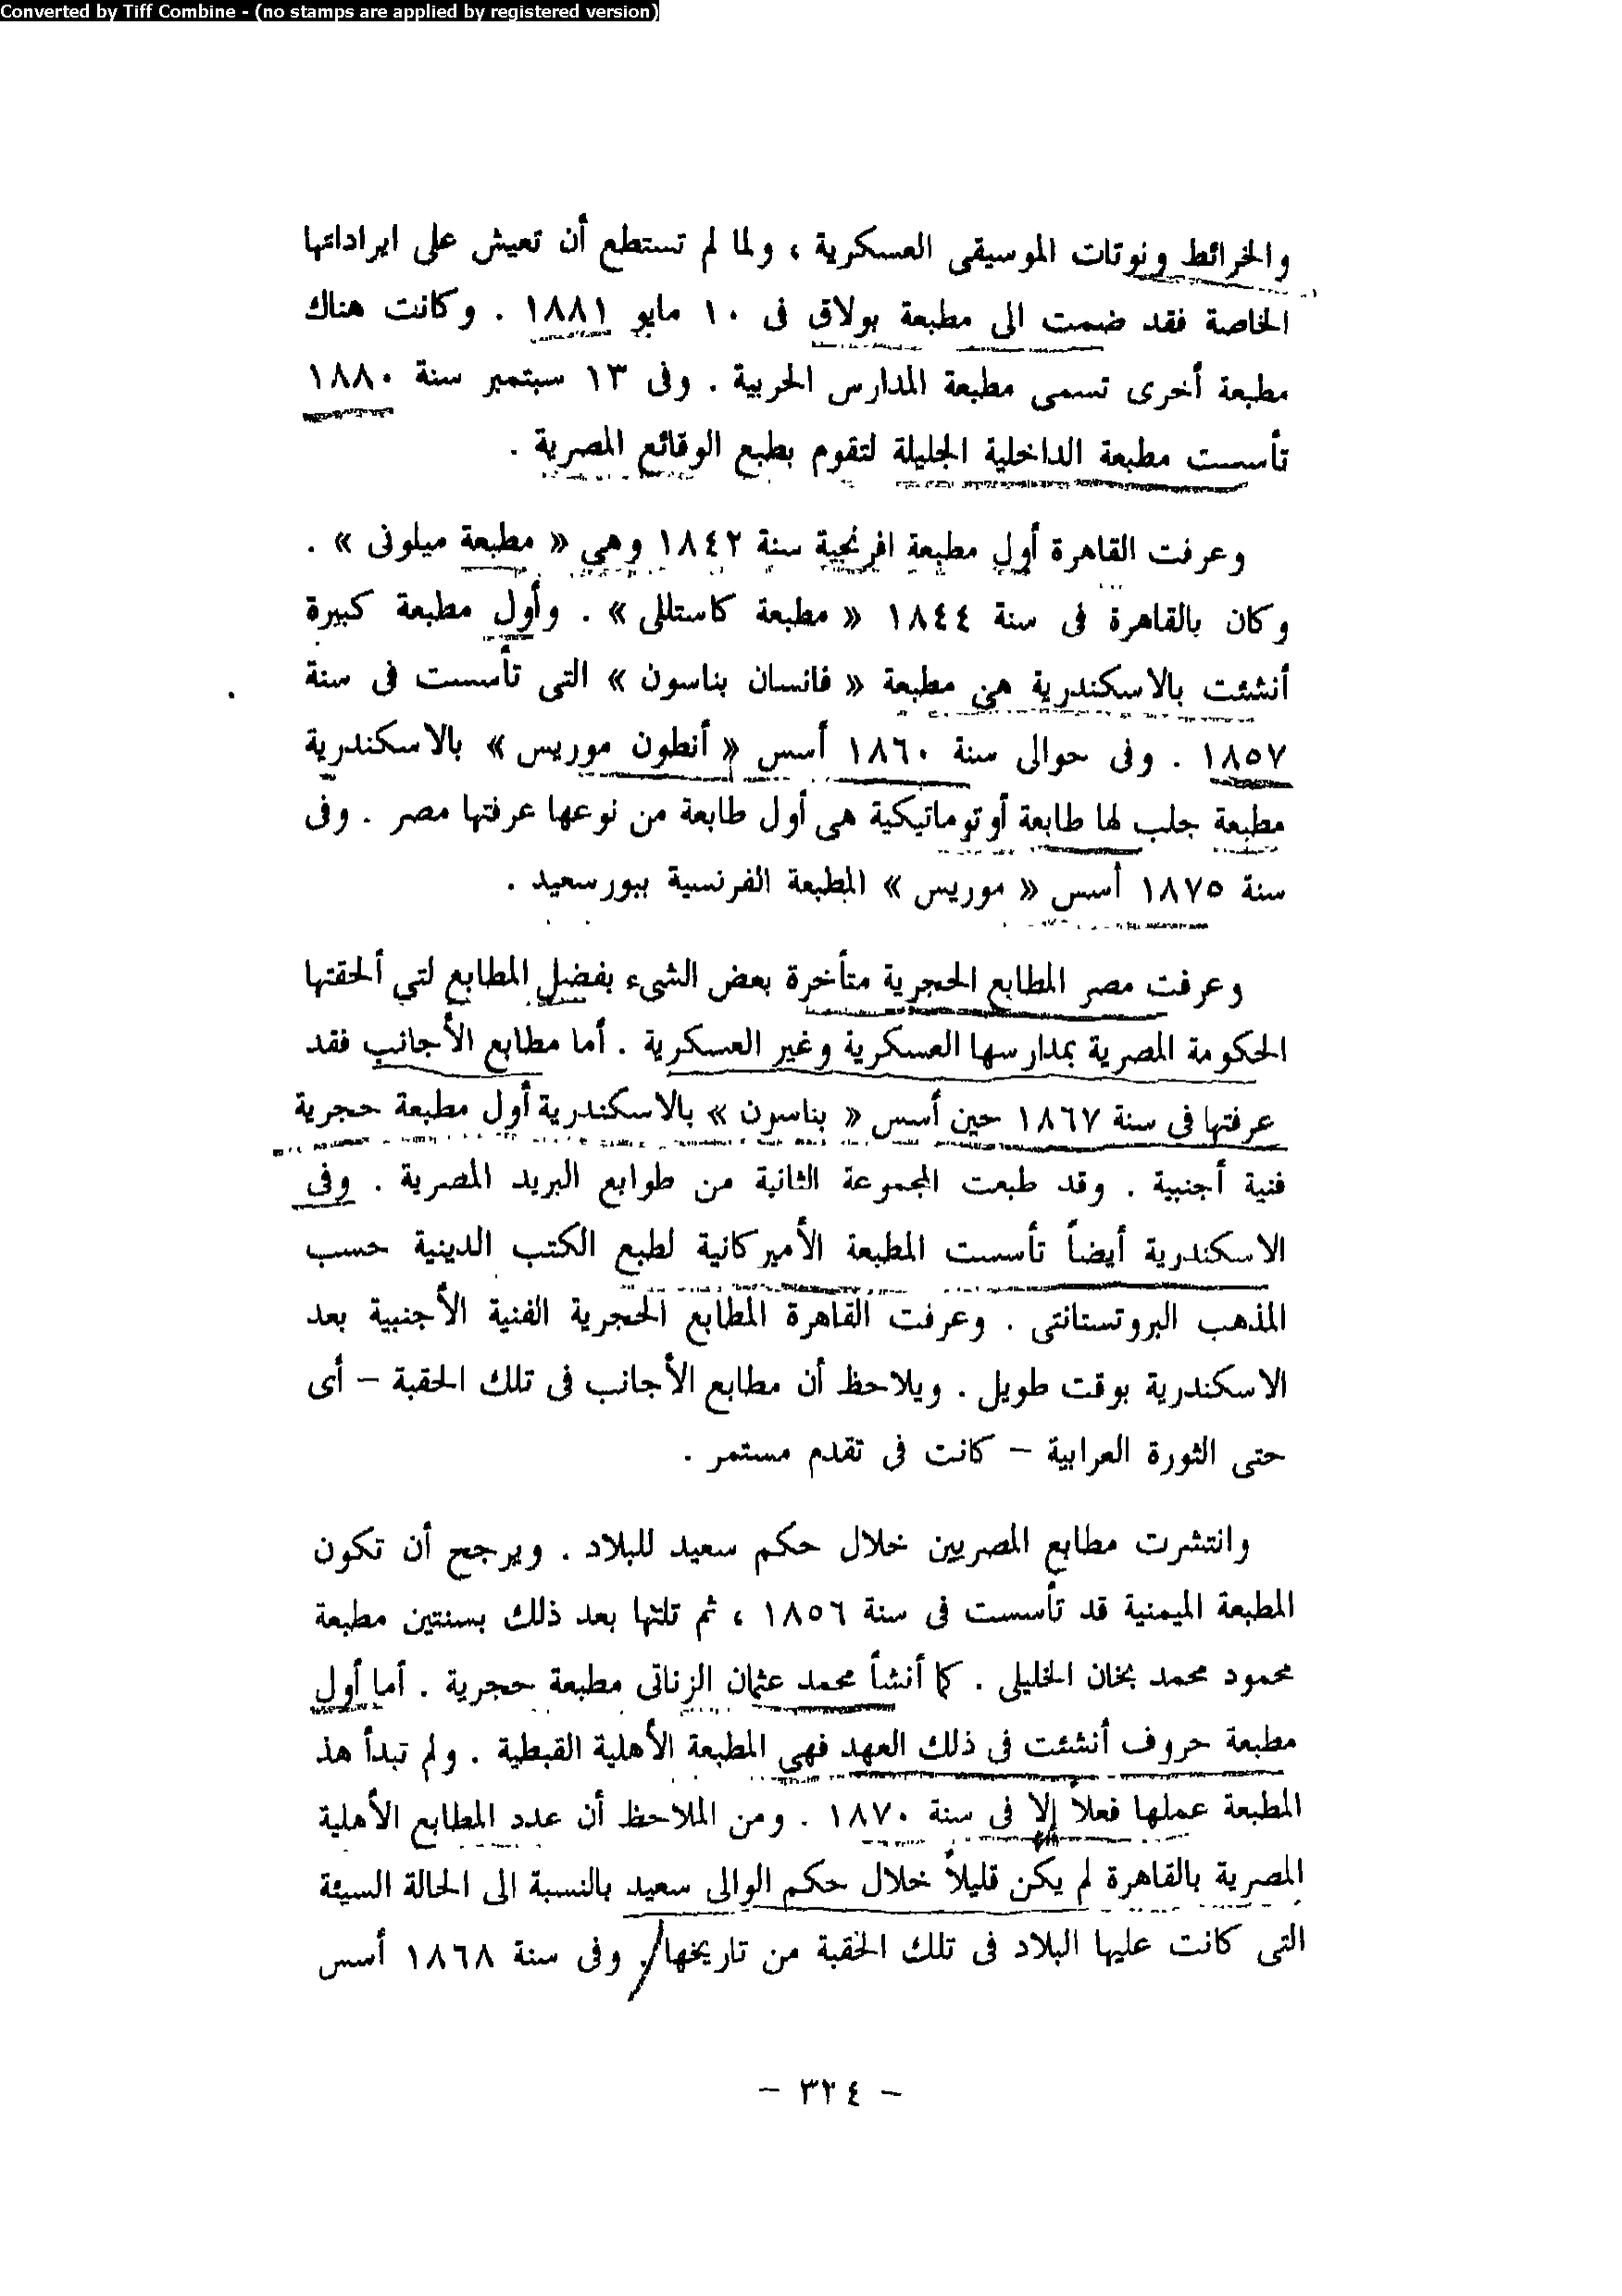 Converted by Tiff Combine - (no stamps are applied by registered version)
والخرائط ونوتات الموسيقى العسكرية ، ولما لم تستطع أن تعيش على ايراداتها
الخاصة فقد ضمت الى مطبعة بولاق فى ١٠ مايو ١٨٨١ . وكانت هناك
مطبعة أخرى تسمى مطبعة المدارس الحربية . وفى ١٣ سبتمبر سنة ١٨٨٠
تأسست مطبعة الداخلية الجليلة لتقوم بطبع الوقائع المصرية .
وعرفت القاهرة أول مطبعة افرنجية سنة ١٨٤٢ وهى « مطبعة ميلونى » .
وكان بالقاهرة فى سنة ١٨٤٤ « مطبعة كاستللى » . وأول مطبعة كبيرة
أنشئت بالاسكندرية هى مطبعة « فانسان بناسون » التى تأسست فى سنة
١٨٥٧ . وفى حوالى سنة ١٨٦٠ أسس « أنطون موريس » بالاسكندرية
مطبعة جلب لها طابعة أوتوماتيكية هى أول طابعة من نوعها عرفتها مصر . وفى
سنة ١٨٧٥ أسس « موريس » المطبعة الفرنسية ببورسعيد .
وعرفت مصر المطابع الحجرية متأخرة بعض الشىء بفضل المطابع لتي ألحقتها
الحكومة المصرية بمدارسها العسكرية وغير العسكرية . أما مطابع الأجانب فقد
عرفتها فى سنة ١٨٦٧ حين أسس « بناسون » بالاسكندرية أول مطبعة حجرية
فنية أجنبية . وقد طبعت المجموعة الثانية من طوابع البريد المصرية . وفى
الاسكندرية أيضاً تأسست المطبعة الأميركانية لطبع الكتب الدينية حسب
المذهب البروتستانتى . وعرفت القاهرة المطابع الحجرية الفنية الأجنبية بعد
الاسكندرية بوقت طويل . ويلاحظ أن مطابع الأجانب فى تلك الحقبة – أى
حتى الثورة العرابية – كانت فى تقدم مستمر .
وانتشرت مطابع المصريين خلال حكم سعيد للبلاد . ويرجح أن تكون
المطبعة الميمنية قد تأسست فى سنة ١٨٥٦ ، ثم تلتها بعد ذلك بسنتين مطبعة
محمود محمد بخان الخليلى . كما أنشأ محمد عثمان الزناتى مطبعة حجرية . أما أول
مطبعة حروف أنشئت فى ذلك العهد فهى المطبعة الأهلية القبطية . ولم تبدأ هذ
المطبعة عملها فعلاً إلا فى سنة ١٨٧٠ . ومن الملاحظ أن عدد المطابع الأهلية
المصرية بالقاهرة لم يكن قليلاً خلال حكم الوالى سعيد بالنسبة الى الحالة السيئة
التى كانت عليها البلاد فى تلك الحقبة من تاريخها . وفى سنة ١٨٦٨ أسس
– ٣٢٤ –